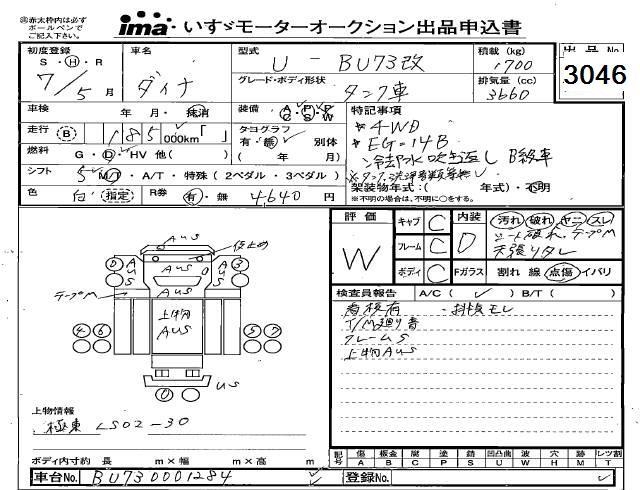 ◎赤太枠内は必ず
ボールペンで
ご記入下さい。
ima いすゞモーターオークション出品申込書
初度登録 S・H・R 7/5月
車名 ダイナ
型式 U - BU73改
積載(kg) 1700
出品No. 3046
グレード・ボディ形状 タンク車
排気量(cc) 3660
車検 年 月・抹消
装備 A・P・P C・S・W
特記事項
走行 (B) 185,000km「 」
タコグラフ 有・無 別体 ( 年 月)
*4WD
*EG=14B
燃料 G・D・HV 他( )
冷却水吹き返し B級車
シフト 5 M/T・A/T・特殊(2ペダル・3ペダル)
色 白 指定
R券 有・無 4640円
架装物年式:( 年式)・不明
※不明の場合は、不明に○をする。
評価 W
キャブ C
フレーム C
ボディ C
内装 D
汚れ 破れ ヤニ スレ
シート破れ、テープM
天張りタレ
Fガラス 割れ 線 点傷 イバリ
検査員報告 A/C(✓) B/T( )
看板有
T/M廻り音
フレームS
上物AUS
AUS
AUS
AUS
上物
AUS
テープM
US
上物情報
極東 LS02-30
ボディ内寸約 長 m×幅 m×高 m
記号 傷 A 板金 B 腐 C 塗 P 錆 S 凹凸曲 U 波 W 穴 H 跡 M レツ割 T
車台No. BU730001284
登録No.